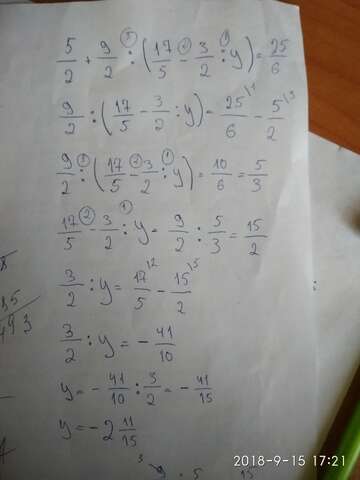 5/2 + 9/2 :③ (17/5 -② 3/2 :① y) = 25/6
9/2 : (17/5 - 3/2 : y) = 25/6 \1 - 5/2 \3
9/2 :③ (17/5 -② 3/2 :① y) = 10/6 = 5/3
17/5 -② 3/2 :① y = 9/2 : 5/3 = 15/2
3/2 : y = 17/5 \2 - 15/2 \5
3/2 : y = - 41/10
y = - 41/10 : 3/2 = - 41/15
y = - 2 11/15
2018-9-15 17:21